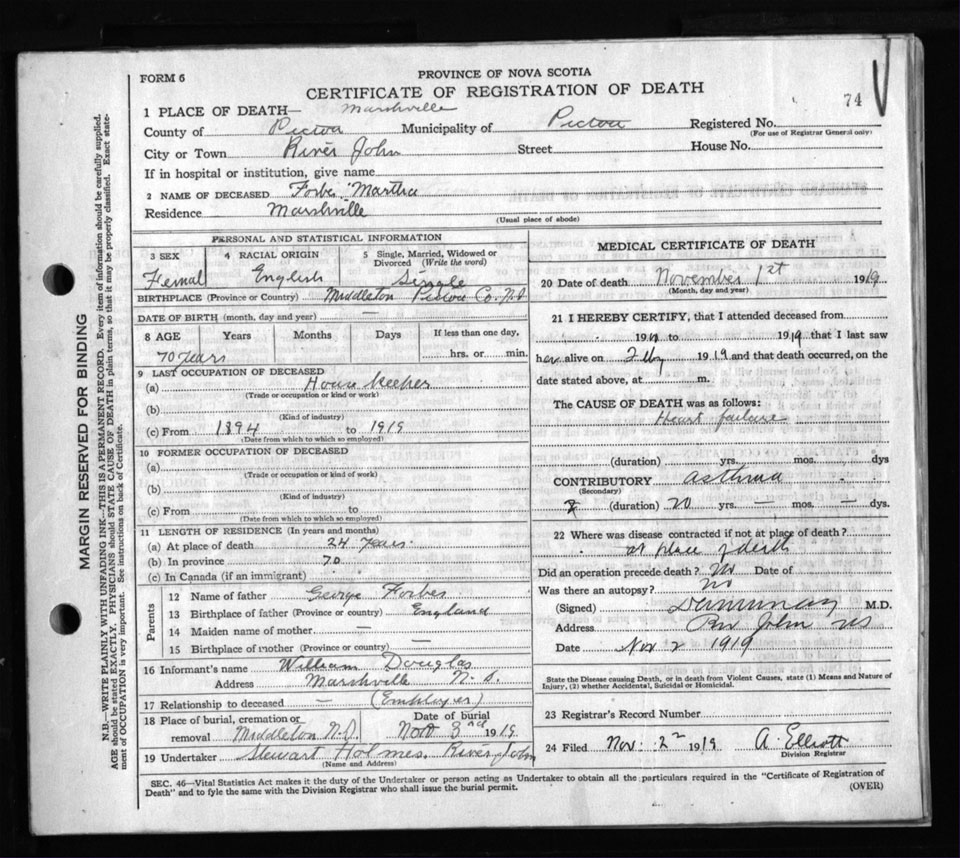 PROVINCE OF NOVA SCOTIA
FORM 6
CERTIFICATE OF REGISTRATION OF DEATH
74
1 PLACE OF DEATH— Marshville
County of Pictou Municipality of Pictou Registered No.
(For use of Registrar General only)
City or Town River John Street House No.
If in hospital or institution, give name
2 NAME OF DECEASED Forbes, Martha
Residence Marshville
(Usual place of abode)
MARGIN RESERVED FOR BINDING
N.B.—WRITE PLAINLY WITH UNFADING INK—THIS IS A PERMANENT RECORD. Every item of information should be carefully supplied.
AGE should be stated EXACTLY. PHYSICIANS should STATE CAUSE OF DEATH in plain terms, so that it may be properly classified. Exact state-
ment of OCCUPATION is very important. See instructions on back of Certificate.
PERSONAL AND STATISTICAL INFORMATION
3 SEX 4 RACIAL ORIGIN 5 Single, Married, Widowed or Divorced (Write the word)
Femal English Single
BIRTHPLACE (Province or Country) Middleton Pictou Co. N.S.
DATE OF BIRTH (month, day and year) —
8 AGE Years Months Days If less than one day,
70 years hrs. or min.
9 LAST OCCUPATION OF DECEASED
(a) House Keeper
(Trade or occupation or kind or work)
(b)
(Kind of industry)
(c) From 1894 to 1919
(Date from which to which so employed)
10 FORMER OCCUPATION OF DECEASED
(a)
(Trade or occupation or kind of work)
(b)
(Kind of industry)
(c) From to
(Date from which to which so employed)
11 LENGTH OF RESIDENCE (In years and months)
(a) At place of death 24 years
(b) In province 70
(c) In Canada (if an immigrant)
Parents
12 Name of father George Forbes
13 Birthplace of father (Province or country) England
14 Maiden name of mother —
15 Birthplace of mother (Province or country) —
16 Informant's name William Douglas
Address Marshville N.S.
17 Relationship to deceased — (Employer)
18 Place of burial, cremation or removal Middleton N.S. Date of burial Nov 3rd 1919.
19 Undertaker Stewart Holmes. River John
(Name and Address)
MEDICAL CERTIFICATE OF DEATH
20 Date of death November 1st 1919
(Month, day and year)
21 I HEREBY CERTIFY, that I attended deceased from
19 to 1919 that I last saw
her alive on 1919 and that death occurred, on the
date stated above, at m.
The CAUSE OF DEATH was as follows:
Heart failure
(duration) yrs. mos. dys
CONTRIBUTORY asthma
(Secondary)
(duration) 20 yrs. — mos. — dys.
22 Where was disease contracted if not at place of death?
at place of death
Did an operation precede death? No Date of
Was there an autopsy? no
(Signed) M.D.
Address River John NS
Date Nov 2 1919
State the Disease causing Death, or in death from Violent Causes, state (1) Means and Nature of
Injury, (2) whether Accidental, Suicidal or Homicidal.
23 Registrar's Record Number
24 Filed Nov. 2nd 1919 A. Elliott
Division Registrar
SEC. 46—Vital Statistics Act makes it the duty of the Undertaker or person acting as Undertaker to obtain all the particulars required in the "Certificate of Registration of
Death" and to fyle the same with the Division Registrar who shall issue the burial permit.
(OVER)